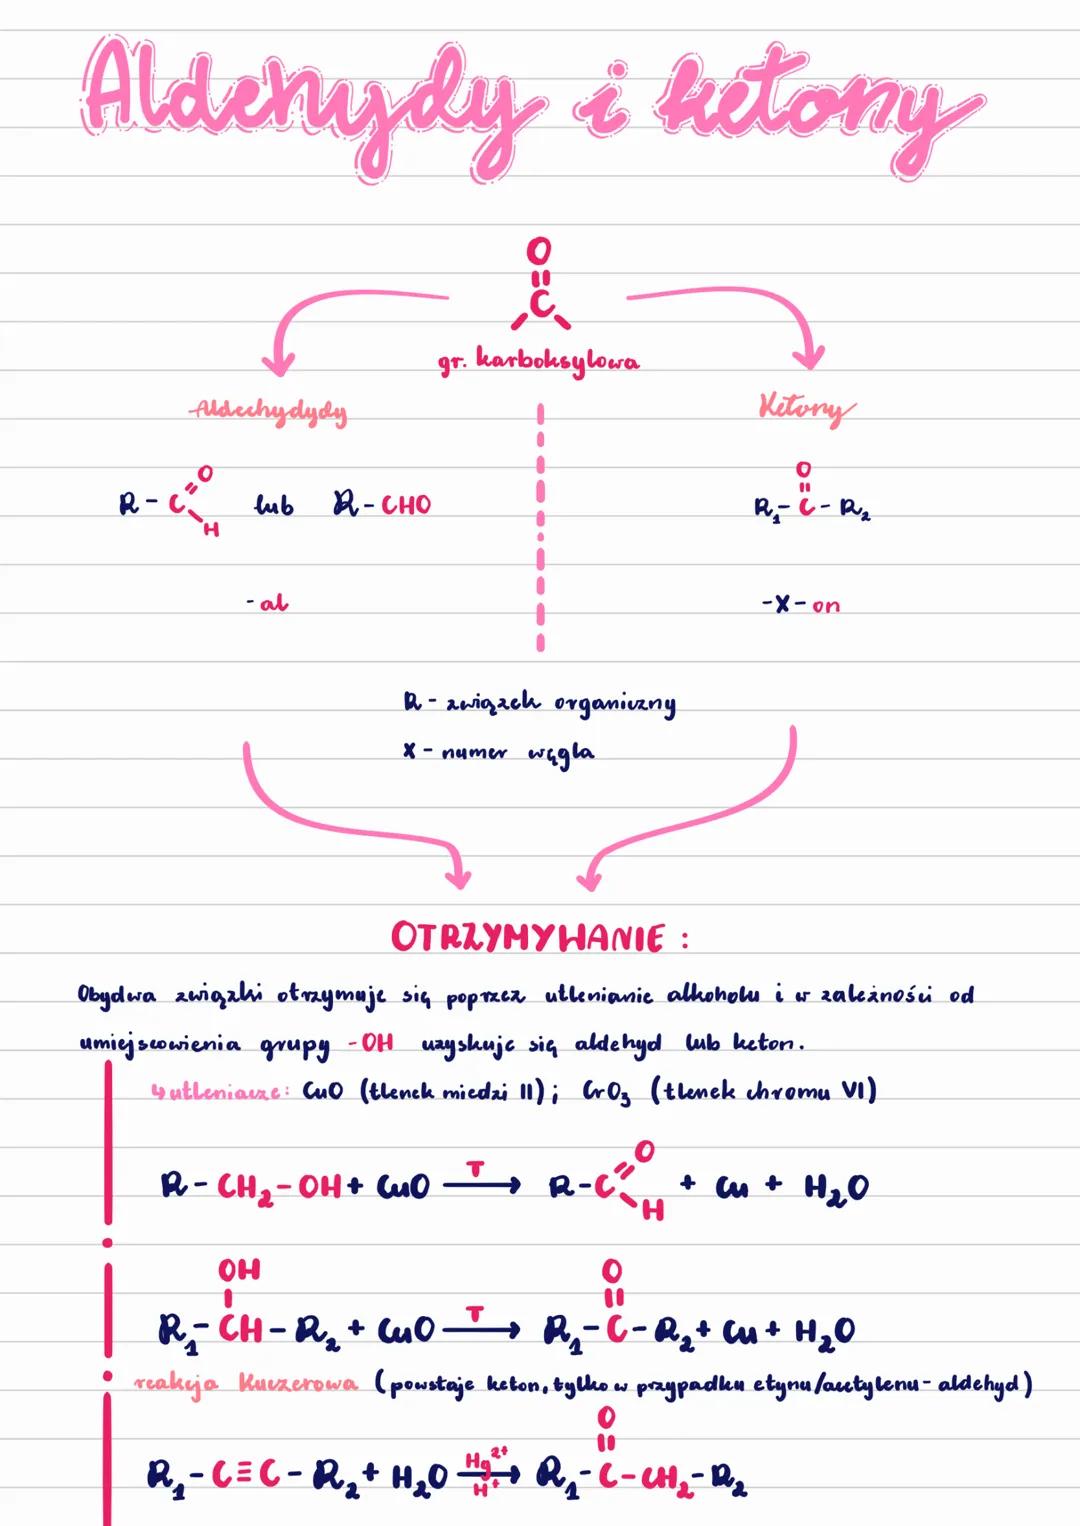 Aldehydy i ketony
O
||
C
gr. karboksylowa
Aldechydydy
Ketony
R - C =O -H lub R - CHO
O
||
R₁ - C - R₂
- al
-X- on
R - związek organiczny
X - numer węgla
OTRZYMYWANIE :
Obydwa związki otrzymuje się poprzez utlenianie alkoholu i w zależności od
umiejscowienia grupy -OH uzyskuje się aldehyd lub keton.
↳ utleniacze: CuO (tlenek miedzi II); CrO₃ (tlenek chromu VI)
R - CH₂ - OH + CuO T→ R - C =O -H + Cu + H₂O
OH O
| ||
R₁ - CH - R₂ + CuO T→ R₁ - C - R₂ + Cu + H₂O
reakcja Kuczerowa (powstaje keton, tylko w przypadku etynu/acetylenu - aldehyd)
O
||
R₁ - C≡C - R₂ + H₂O Hg²⁺→H⁺ R₁ - C - CH₂ - R₂